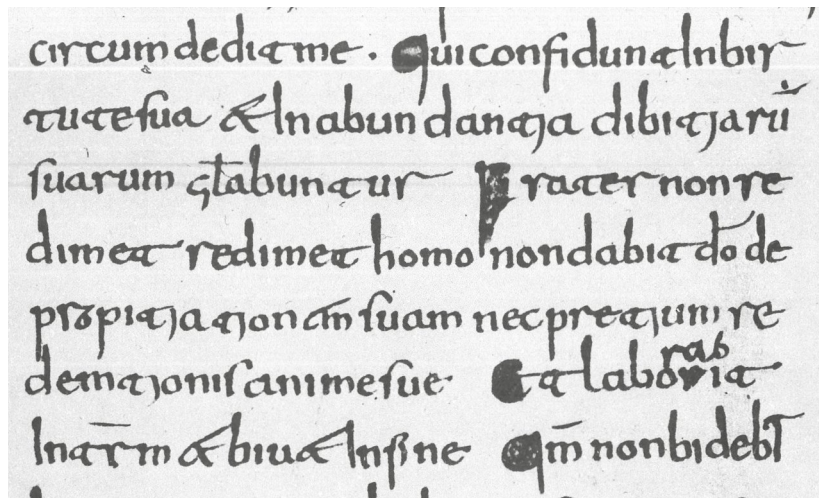 circumdedit me. Qui confidunt In bir
tute sua & In abundantia dibitiarū
suarum gła​buntur Frater non re
dimet redimet homo non dabit dō de
propitiationem suam nec pretium re
demtionis anime sue Et laborabit
In etr̄m & biu& In fine Qm̄ non bidebt̄